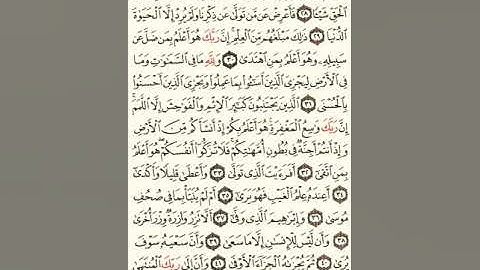 ٱلْحَقِّ شَيْـًٔا ٢٨ فَأَعْرِضْ عَن مَّن تَوَلَّىٰ عَن ذِكْرِنَا وَلَمْ يُرِدْ إِلَّا ٱلْحَيَوٰةَ
ٱلدُّنْيَا ٢٩ ذَٰلِكَ مَبْلَغُهُم مِّنَ ٱلْعِلْمِ إِنَّ رَبَّكَ هُوَ أَعْلَمُ بِمَن ضَلَّ عَن
سَبِيلِهِۦ وَهُوَ أَعْلَمُ بِمَنِ ٱهْتَدَىٰ ٣٠ وَلِلَّهِ مَا فِى ٱلسَّمَٰوَٰتِ وَمَا
فِى ٱلْأَرْضِ لِيَجْزِىَ ٱلَّذِينَ أَسَٰٓـُٔوا۟ بِمَا عَمِلُوا۟ وَيَجْزِىَ ٱلَّذِينَ أَحْسَنُوا۟
بِٱلْحُسْنَى ٣١ ٱلَّذِينَ يَجْتَنِبُونَ كَبَٰٓئِرَ ٱلْإِثْمِ وَٱلْفَوَٰحِشَ إِلَّا ٱللَّمَمَ
إِنَّ رَبَّكَ وَٰسِعُ ٱلْمَغْفِرَةِ هُوَ أَعْلَمُ بِكُمْ إِذْ أَنشَأَكُم مِّنَ ٱلْأَرْضِ
وَإِذْ أَنتُمْ أَجِنَّةٌ فِى بُطُونِ أُمَّهَٰتِكُمْ فَلَا تُزَكُّوٓا۟ أَنفُسَكُمْ هُوَ أَعْلَمُ
بِمَنِ ٱتَّقَىٰٓ ٣٢ أَفَرَءَيْتَ ٱلَّذِى تَوَلَّىٰ ٣٣ وَأَعْطَىٰ قَلِيلًا وَأَكْدَىٰٓ
٣٤ أَعِندَهُۥ عِلْمُ ٱلْغَيْبِ فَهُوَ يَرَىٰٓ ٣٥ أَمْ لَمْ يُنَبَّأْ بِمَا فِى صُحُفِ
مُوسَىٰ ٣٦ وَإِبْرَٰهِيمَ ٱلَّذِى وَفَّىٰٓ ٣٧ أَلَّا تَزِرُ وَازِرَةٌ وِزْرَ أُخْرَىٰ
٣٨ وَأَن لَّيْسَ لِلْإِنسَٰنِ إِلَّا مَا سَعَىٰ ٣٩ وَأَنَّ سَعْيَهُۥ سَوْفَ
يُرَىٰ ٤٠ ثُمَّ يُجْزَىٰهُ ٱلْجَزَآءَ ٱلْأَوْفَىٰ ٤١ وَأَنَّ إِلَىٰ رَبِّكَ ٱلْمُنتَهَىٰ